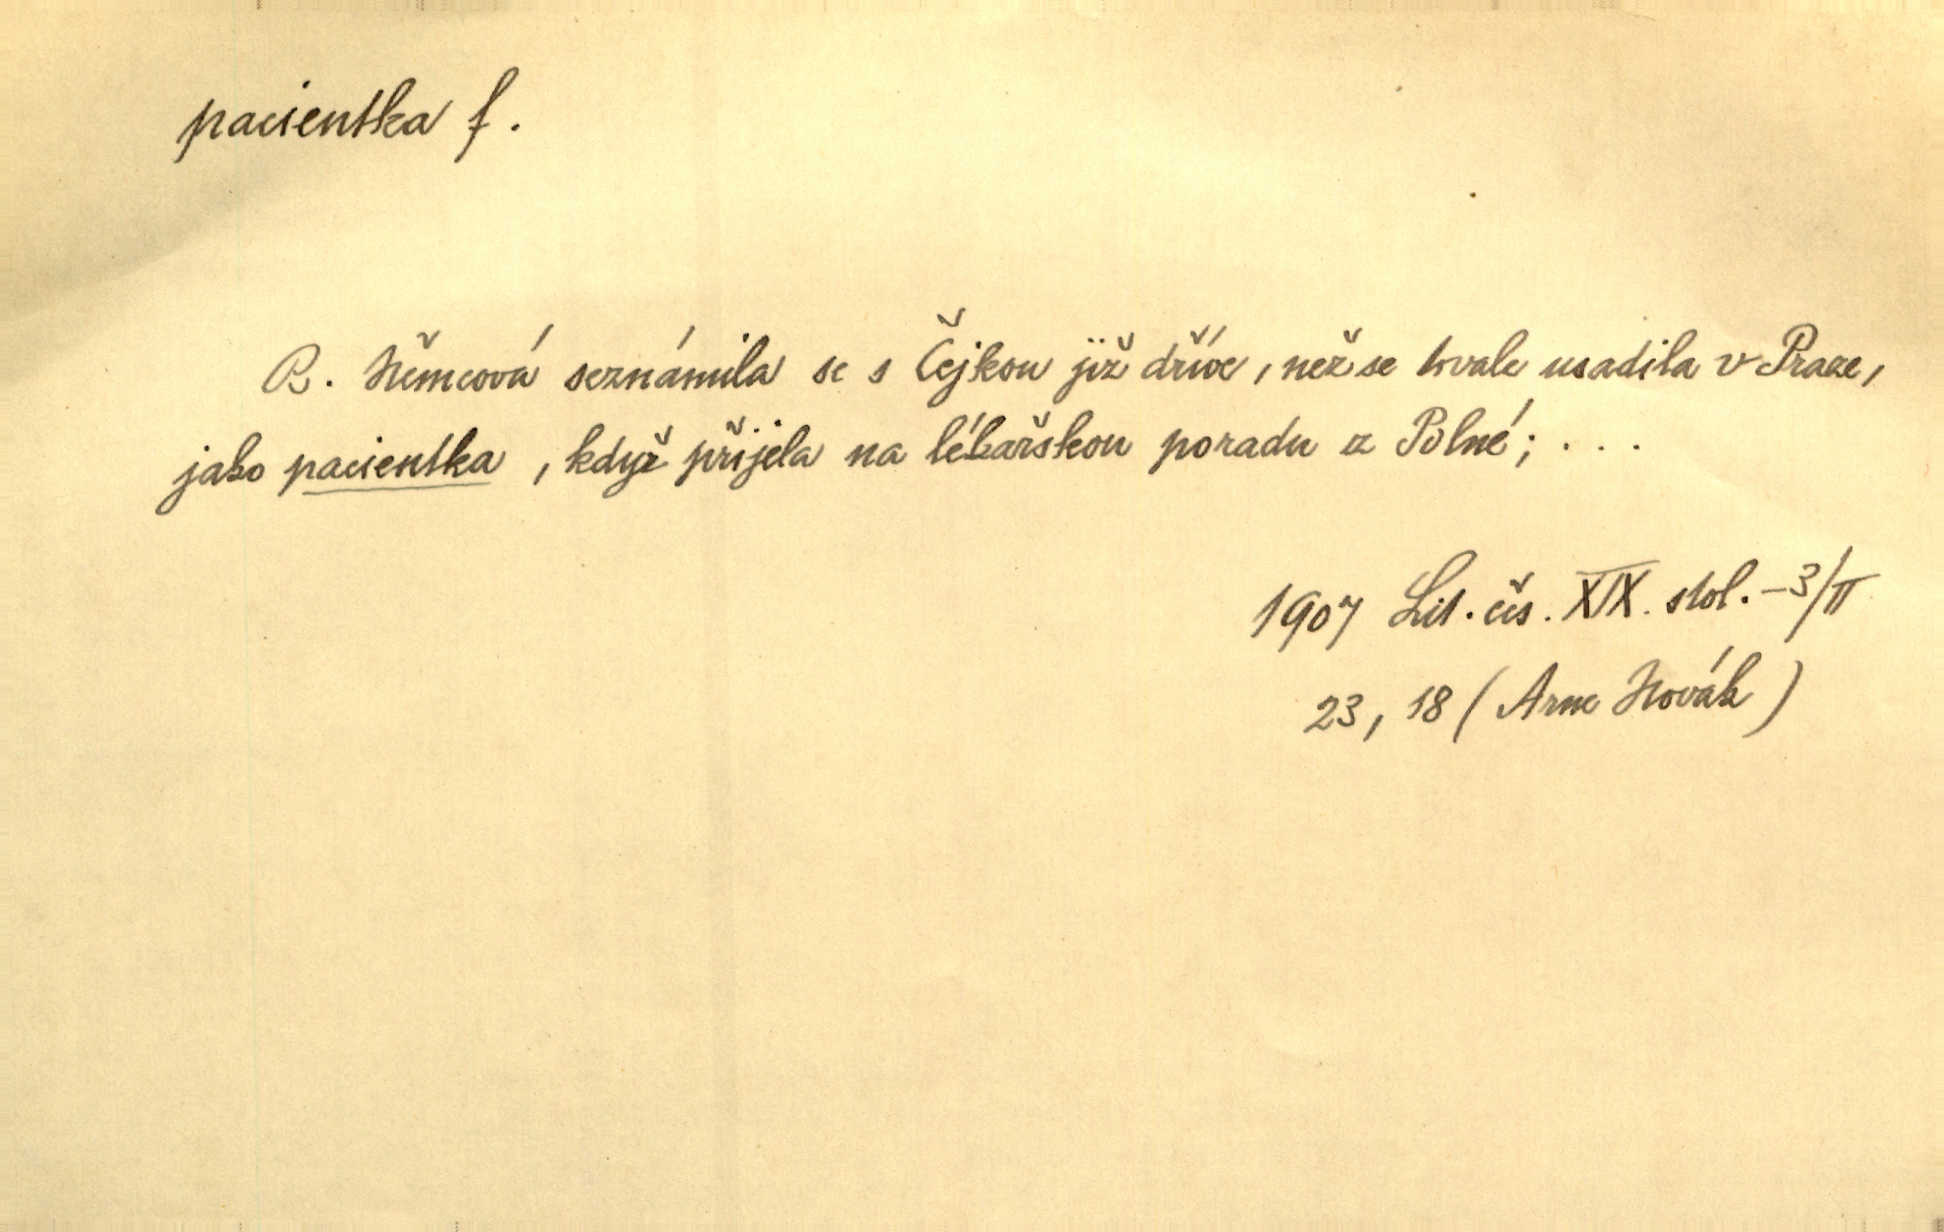 pacientka f.
B. Němcová seznámila se s Čejkou již dříve, než se trvale usadila v Praze,
jako pacientka, když přijela na lékařskou poradu z Polné; . . .
1907 Lit. čes. XIX. stol. - 3/II
23, 18 (Arne Novák)